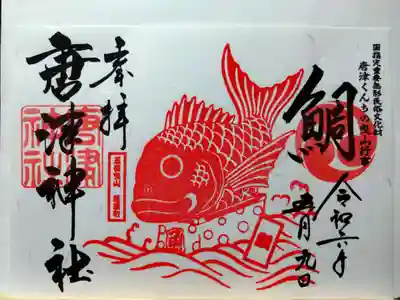 国指定重要無形民俗文化財
唐津くんちの曳山行事
鯛
令和六年
五月九日
奉拝
五番曳山 魚屋町
唐津神社
唐津
神社